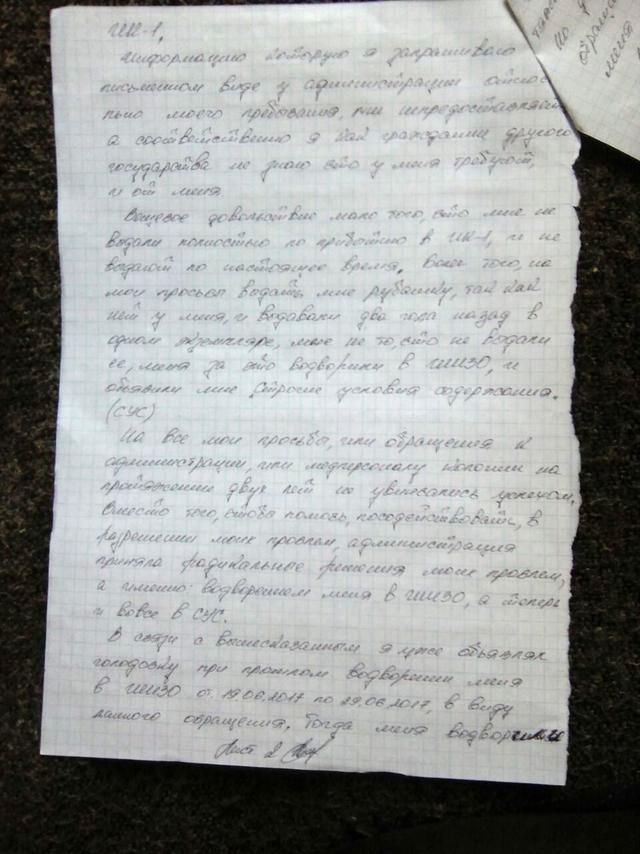 ИК-1.
Информацию которую я запрашиваю
письменном виде у администрации относ
льно моего пребывания, мне непредоставляет
а соответственно я как гражданин другого
государства не знаю что у меня требуют,
и от меня
Вещевое довольствие мало того, что мне не
выдали полностью по прибытию в ИК-1, и не
выдают по настоящее время. Более того, на
мои просьбы выдать мне рубашку, так как
у меня, и выдавали два года назад в
одном экземпляре, мне не то, что не выдали
ее, меня за это водворили в ШИЗО, и
объявили мне строгие условия содержания.
(СУС)
На все мои просьбы, или обращения к
администрации, или медперсоналу колонии на
протяжении двух лет не увенчались успехом.
Вместо того, чтобы помочь, посодействовать, в
разрешении моих проблем, администрация
приняла радикальные решения моих проблем,
а именно: водворением меня в ШИЗО, а теперь
и вовсе в СУС.
В связи с вышесказанным я уже объявлял
голодовку при прошлом водворении меня
в ШИЗО от 19.06.2017 по 29.06.2017, в виду
данного обращения. Тогда меня водворили
Лист 2
меня